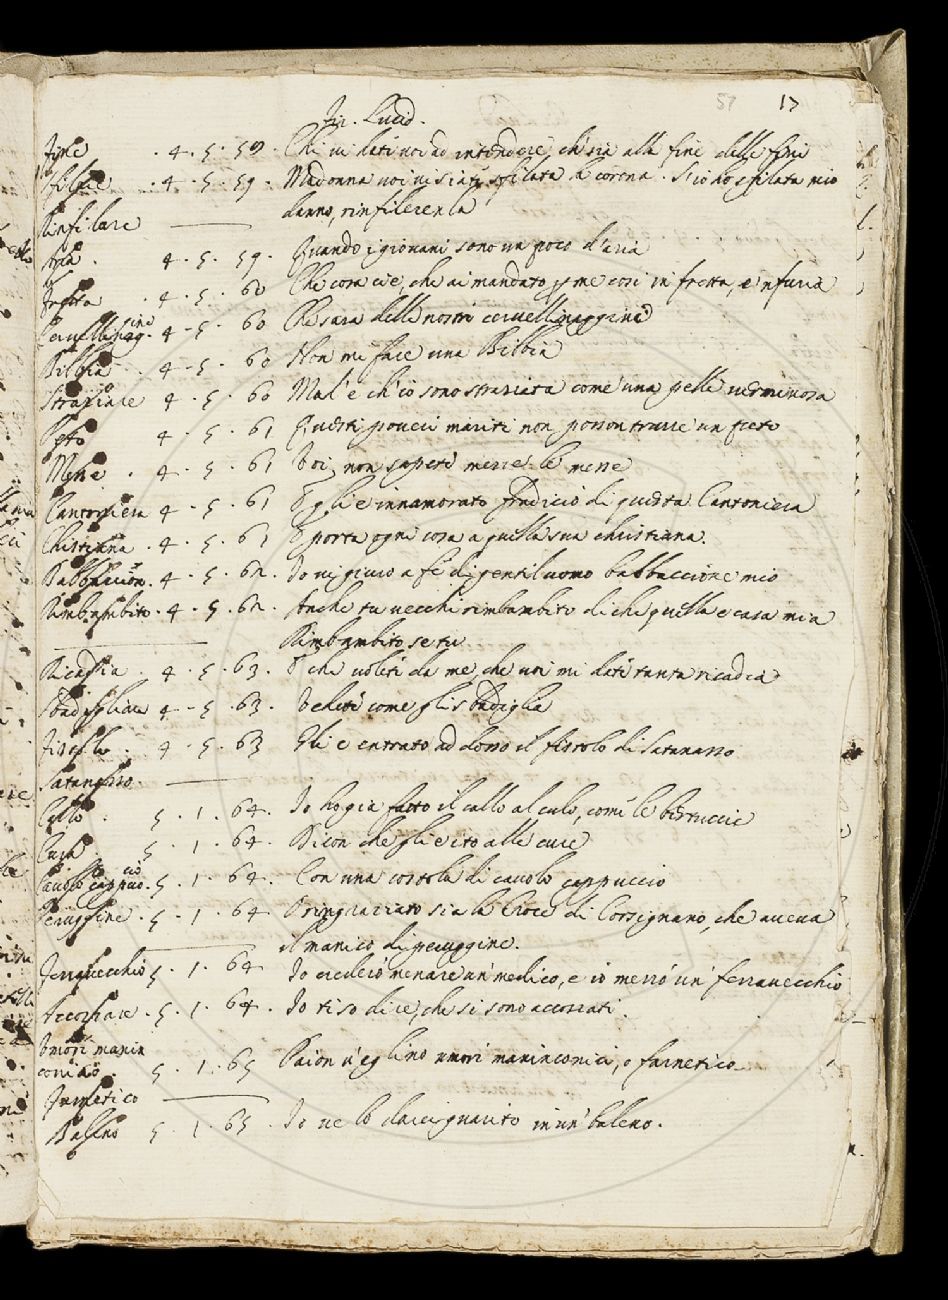 57 17
Fir. Lucid.
Fine . 4 . 5 . 59 . Chi vi dati voi ad intendere, ch'sia alla fine delle fini
Sfilare . 4 . 5 . 59 . Madonna voi vi siate sfilata la corona. S'io ho sfilata mio
danno, rinfilerenla
Rinfilare
Aria . 4 . 5 . 59 . Quando i giovani sono un poco d'aria
Fretta . 4 . 5 . 60 Che cosa c'è, che ai mandato p me cosi in fretta, e'nfuria
Cervellinaggine 4 . 5 . 60 Ch sara delle nostri cervellinaggini
Bibbia . 4 . 5 . 60 Non mi fate una Bibbia
Straziare 4 . 5 . 60 Mal'è ch'io sono straziata come una pelle verminosa
4 . 5 . 61 Questi poveri mariti non posson trarre un
Messe . 4 . 5 . 61 Voi non sapete messe le messe
Cantoniera 4 . 5 . 61 Egli è innamorato fradicio di questa Cantoniera
Christiana . 4 . 5 . 61 E porta ogni cosa a quella sua christiana.
Babbuccion . 4 . 5 . 62 . Io vi giuro a fè di gentiluomo babbuccione mio
Rimbambito . 4 . 5 . 62 . Anche tu vecchi rimbambito di che quella e casa mia
Rimbambito se tu
Ricadia . 4 . 5 . 63 . E che volete da me, che voi mi date tanta ricadia
Sbadigliare 4 . 5 . 63 . Vedete come gli sbadiglia
Fistolo . 4 . 5 . 63 Gli è entrato addosso il fistolo di Satanasso
Satanasso
Callo . 5 . 1 . 64 . Io ho gia fatto il callo al culo, come le bertuccie
Cura 5 . 1 . 64 . Dicon che gli è ito alle cure
Cavolo cappuccio . 5 . 1 . 64 . Con una costola di cavolo cappuccio
Peruggine . 5 . 1 . 64 . Ringraziato sia la Croce di Corsignano, che aveva
il manico di peruggine.
Ferravecchio 5 . 1 . 64 . Io credeio menare un'medico, e io menò un'ferravecchio
Accorsare . 5 . 1 . 64 . Io ti so dire, che si sono accorsati.
Umori manin
conico . 5 . 1 . 65 Paion v'eglino umori maninconici, o farnetico
Farnetico
Baleno 5 . 1 . 65 . Io ve lo davei in un'baleno.